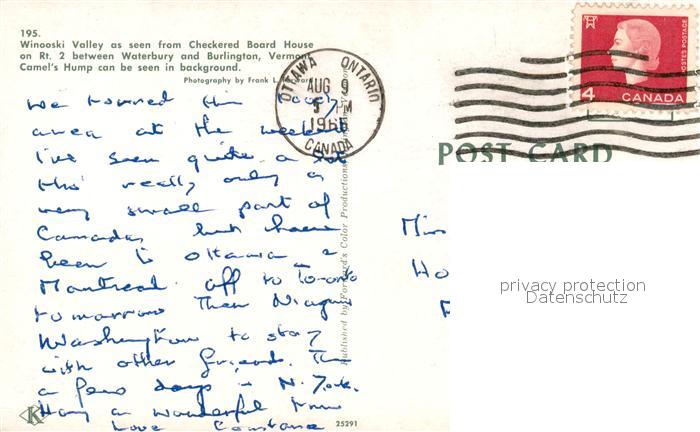 195.
Winooski Valley as seen from Checkered Board House
on Rt. 2 between Waterbury and Burlington, Vermont
Camel's Hump can be seen in background.
Photography by Frank L.
OTTAWA ONTARIO
AUG 9
5 PM
1966
CANADA
4 CANADA
POSTES POSTAGE
POST CARD
We toured this lovely
area at the weekend
I've seen quite a lot
tho' really only a
very small part of
Canada, but have
been to Ottawa &
Montreal off to Toronto
tomorrow then Niagara
Washington to stay
with other friends. Then
a few days in N. York.
Having a wonderful time
Love Constance
Published by Forward's Color Productions
Miss
Ho
privacy protection
Datenschutz
K
25291